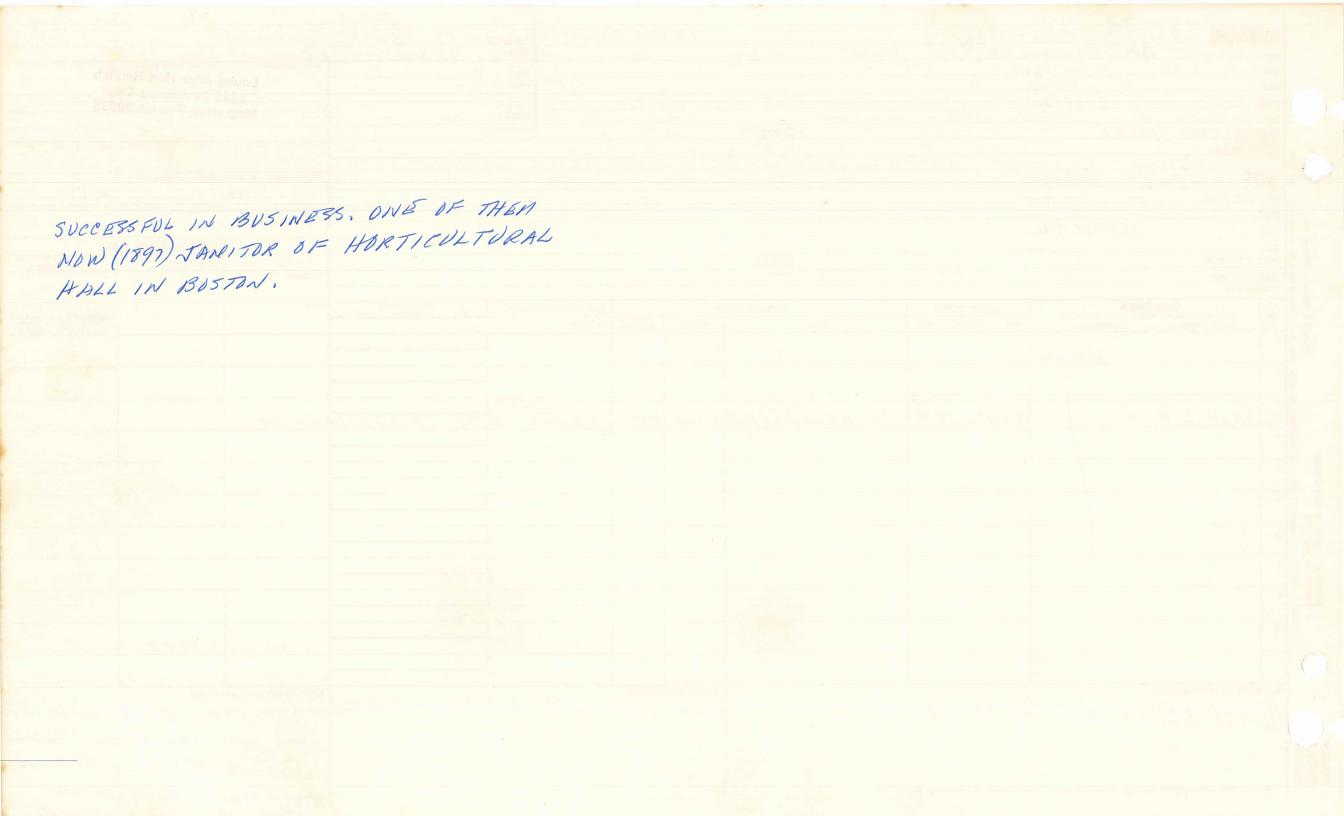 SUCCESSFUL IN BUSINESS. ONE OF THEM
NOW (1897) JANITOR OF HORTICULTURAL
HALL IN BOSTON.